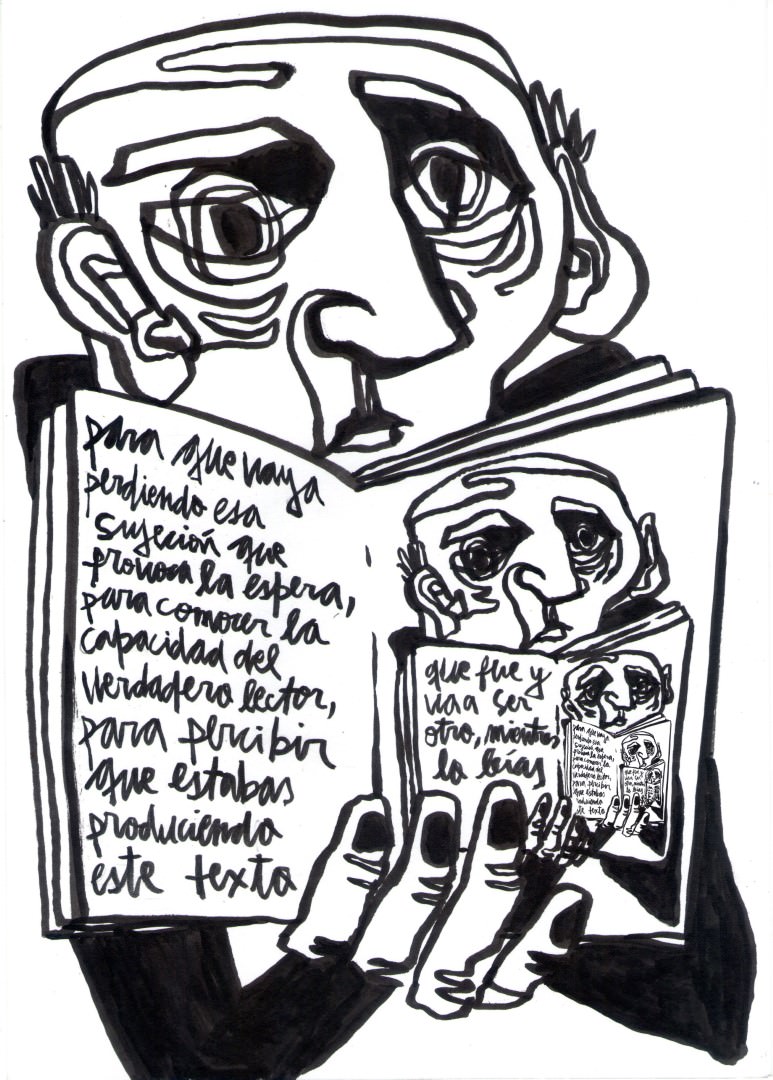 para que vaya
perdiendo esa
sujeción que
provoca la espera,
para conocer la
capacidad del
verdadero lector,
para percibir
que estabas
produciendo
este texto
que fue y
va a ser
otro, mientras
lo leías
para que vaya
perdiendo esa
sujeción que
provoca la espera,
para conocer la
capacidad del
verdadero lector,
para percibir
que estabas
produciendo
este texto